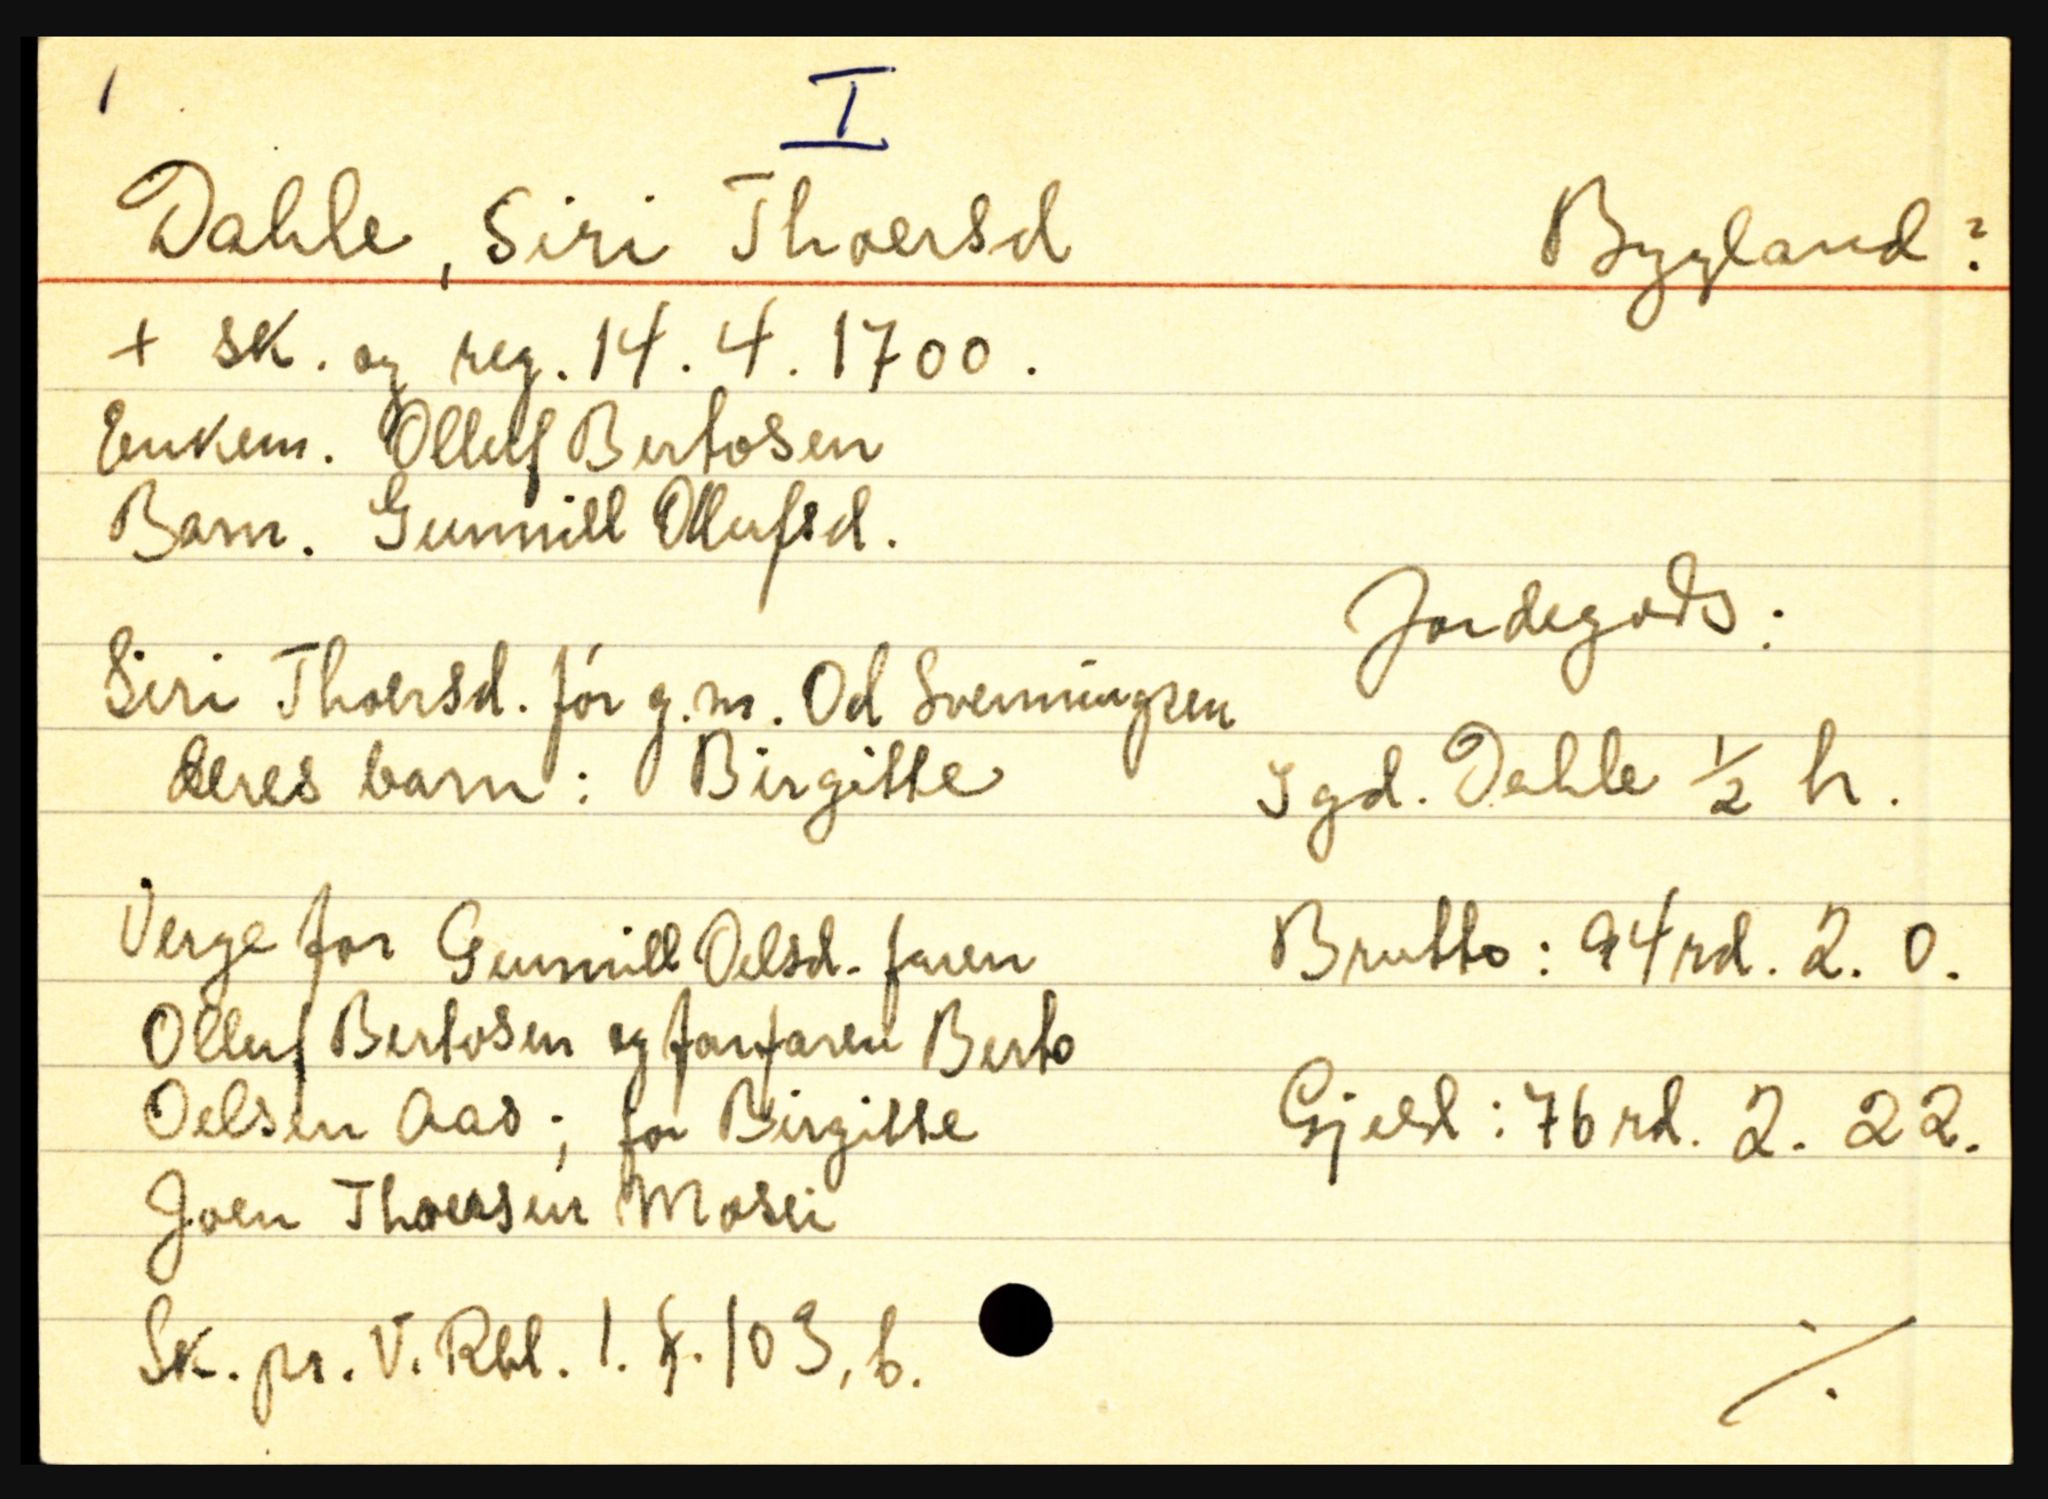 I
Dahle, Siri Thoersd Bygland?
+ sk. og reg. 14. 4. 1700.
Enkem. Olluf Bertosen
Barn. Gunnill Ollufsd.
Jordegods:
Siri Thoersd. før g.m. Od Svenningsen
deres barn: Birgitte
I gd. Dahle 1/2 h.
Verge for Gunnill Oelsd. faren
Olluf Bertosen og farfaren Berto
Oelsen Aas; for Birgitte
Joen Thoersen Mosei
Brutto: 94 rd. 2. 0.
Gjeld: 76 rd. 2. 22.
Sk. pr. V. Rbl. 1. f. 103, b.